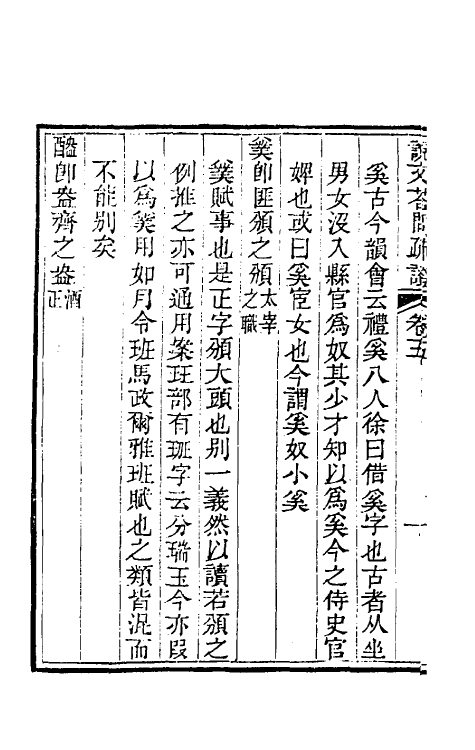 說文答問疏證 卷五
奚古今韻會云禮奚八人徐曰借奚字也古者从坐
男女沒入縣官爲奴其少才知以爲奚今之侍史官
婢也或曰奚宦女也今謂奚奴小奚
即匪頒之頒太宰之職
賦事也是正字頒大頭也别一義然以讀若頒之
例推之亦可通用案玨部有班字云分瑞玉今亦叚
以爲用如月令班馬政爾雅班賦也之類皆混而
不能别矣
醠即盎齊之盎酒正